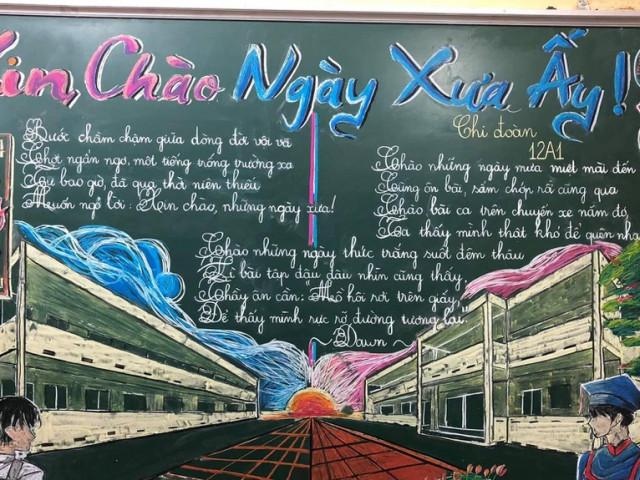 Xin Chào Ngày Xưa Ấy!
Chi đoàn
12A1
Bước chầm chậm giữa dòng đời vội vã
Chợt ngẩn ngơ, một tiếng trống trường xa
Từ bao giờ, đã qua thời niên thiếu
Muốn ngỏ lời: Xin chào, những ngày xưa!
Chào những ngày mưa miệt mài đến
Cùng ôn bài, sấm chớp rã cũng qua
Chào bài ca trên chuyến xe năm đó,
Ta thấy mình thật khó để quên nha
Chào những ngày thức trắng suốt đêm thâu
Vì bài tập dẫu đâu nhìn cũng thấy,
Thầy ân cần: "Mồ hôi rơi trên giấy,
Để thấy mình rực rỡ đường tương lai."
~ Dawn ~